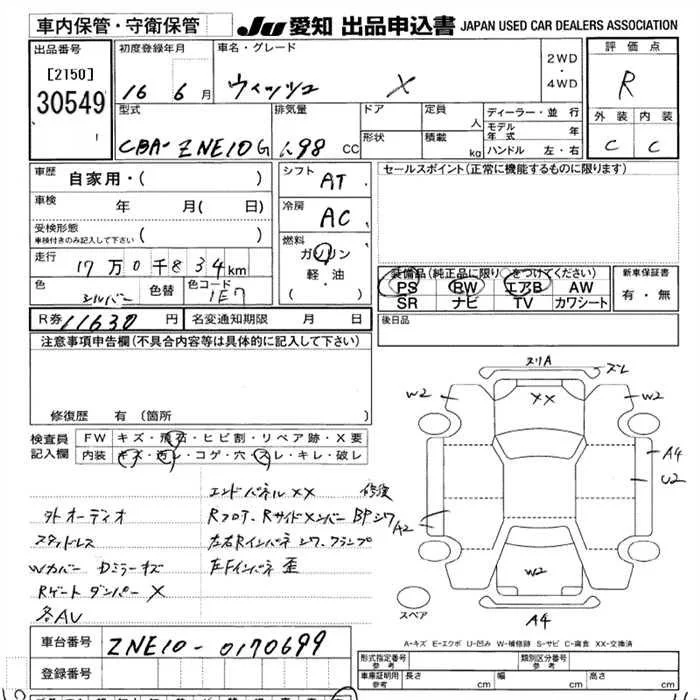 車内保管・守衛保管 JU 愛知 出品申込書 JAPAN USED CAR DEALERS ASSOCIATION
出品番号 [2150] 30549
初度登録年月 16 6月
車名・グレード ウィッシュ X
2WD・4WD
評価点 R
外装 内装
C C
型式 CBA-ZNE10G
排気量 1.98 CC
ドア 定員 人
形状 積載 kg
ディーラー・並行
モデル年式 年
ハンドル 左・右
車歴 自家用・( )
車検 年 月( 日)
受検形態
車検付きのみ記入して下さい
走行 17万0千834km
色 シルバー 色替 色コード 1E7
シフト AT
冷房 AC
燃料 ガソリン
軽・油
( )
セールスポイント(正常に機能するものに限ります)
装備品(純正品に限り○をつけてください)
PS PW エアB AW
SR ナビ TV カワシート
新車保証書
有・無
後日品
R券 11630円 名変通知期限 月 日
注意事項申告欄(不具合内容等は具体的に記入して下さい)
修復歴 有(箇所
検査員記入欄
FW キズ・飛石・ヒビ割・リペア跡・X要
内装 キズ・汚レ・コゲ・穴・スレ・キレ・破レ
エンドパネルXX 修復
外オーディオ RフロT.RサイドメンバーBPシワ
スタッドレス 左右Rインパネ シワ.クランプ
Wカバー Dミラーキズ 左Fインパネ 歪
Rゲートダンパー X
各AU
スリA
スレ
W2 XX W2
A4
U2
A2
W2
スペア
A4
A-キズ E-エクボ U-凹み W-補修跡 S-サビ C-腐食 XX-交換済
車台番号 ZNE10-0170699
登録番号
形式指定番号 参考 類別区分番号 参考
車庫証明用 参考 長さ cm 幅 cm 高さ cm